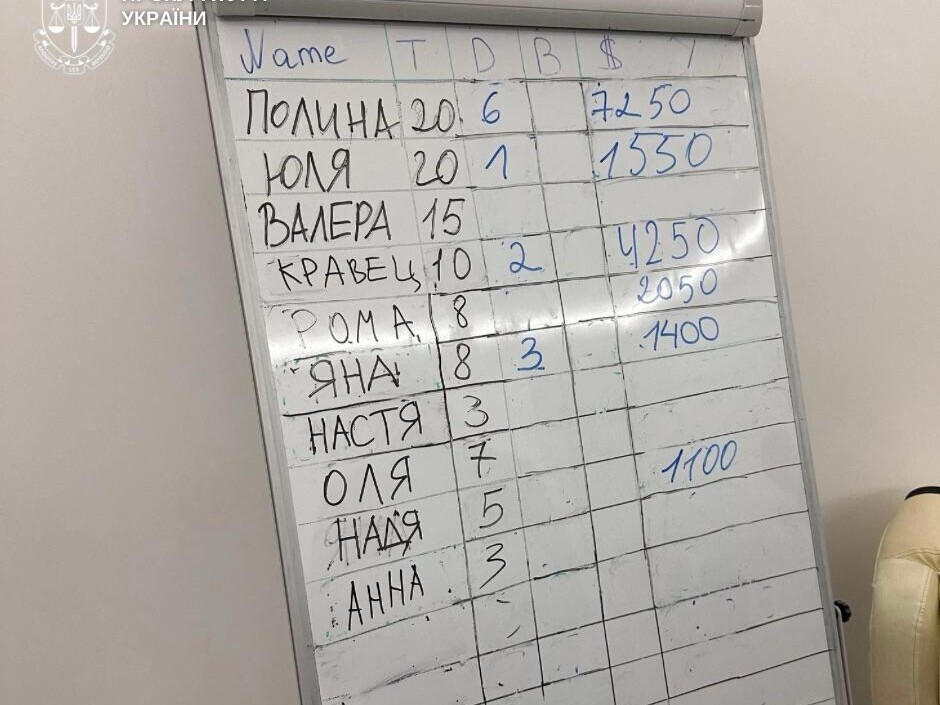 УКРАЇНИ
Name T D B $
ПОЛИНА 20 6 7250
ЮЛЯ 20 1 1550
ВАЛЕРА 15
КРАВЕЦ 10 2 4250
РОМА 8 2050
ЯНА 8 3 1400
НАСТЯ 3
ОЛЯ 7 1100
НАДЯ 5
АННА 3